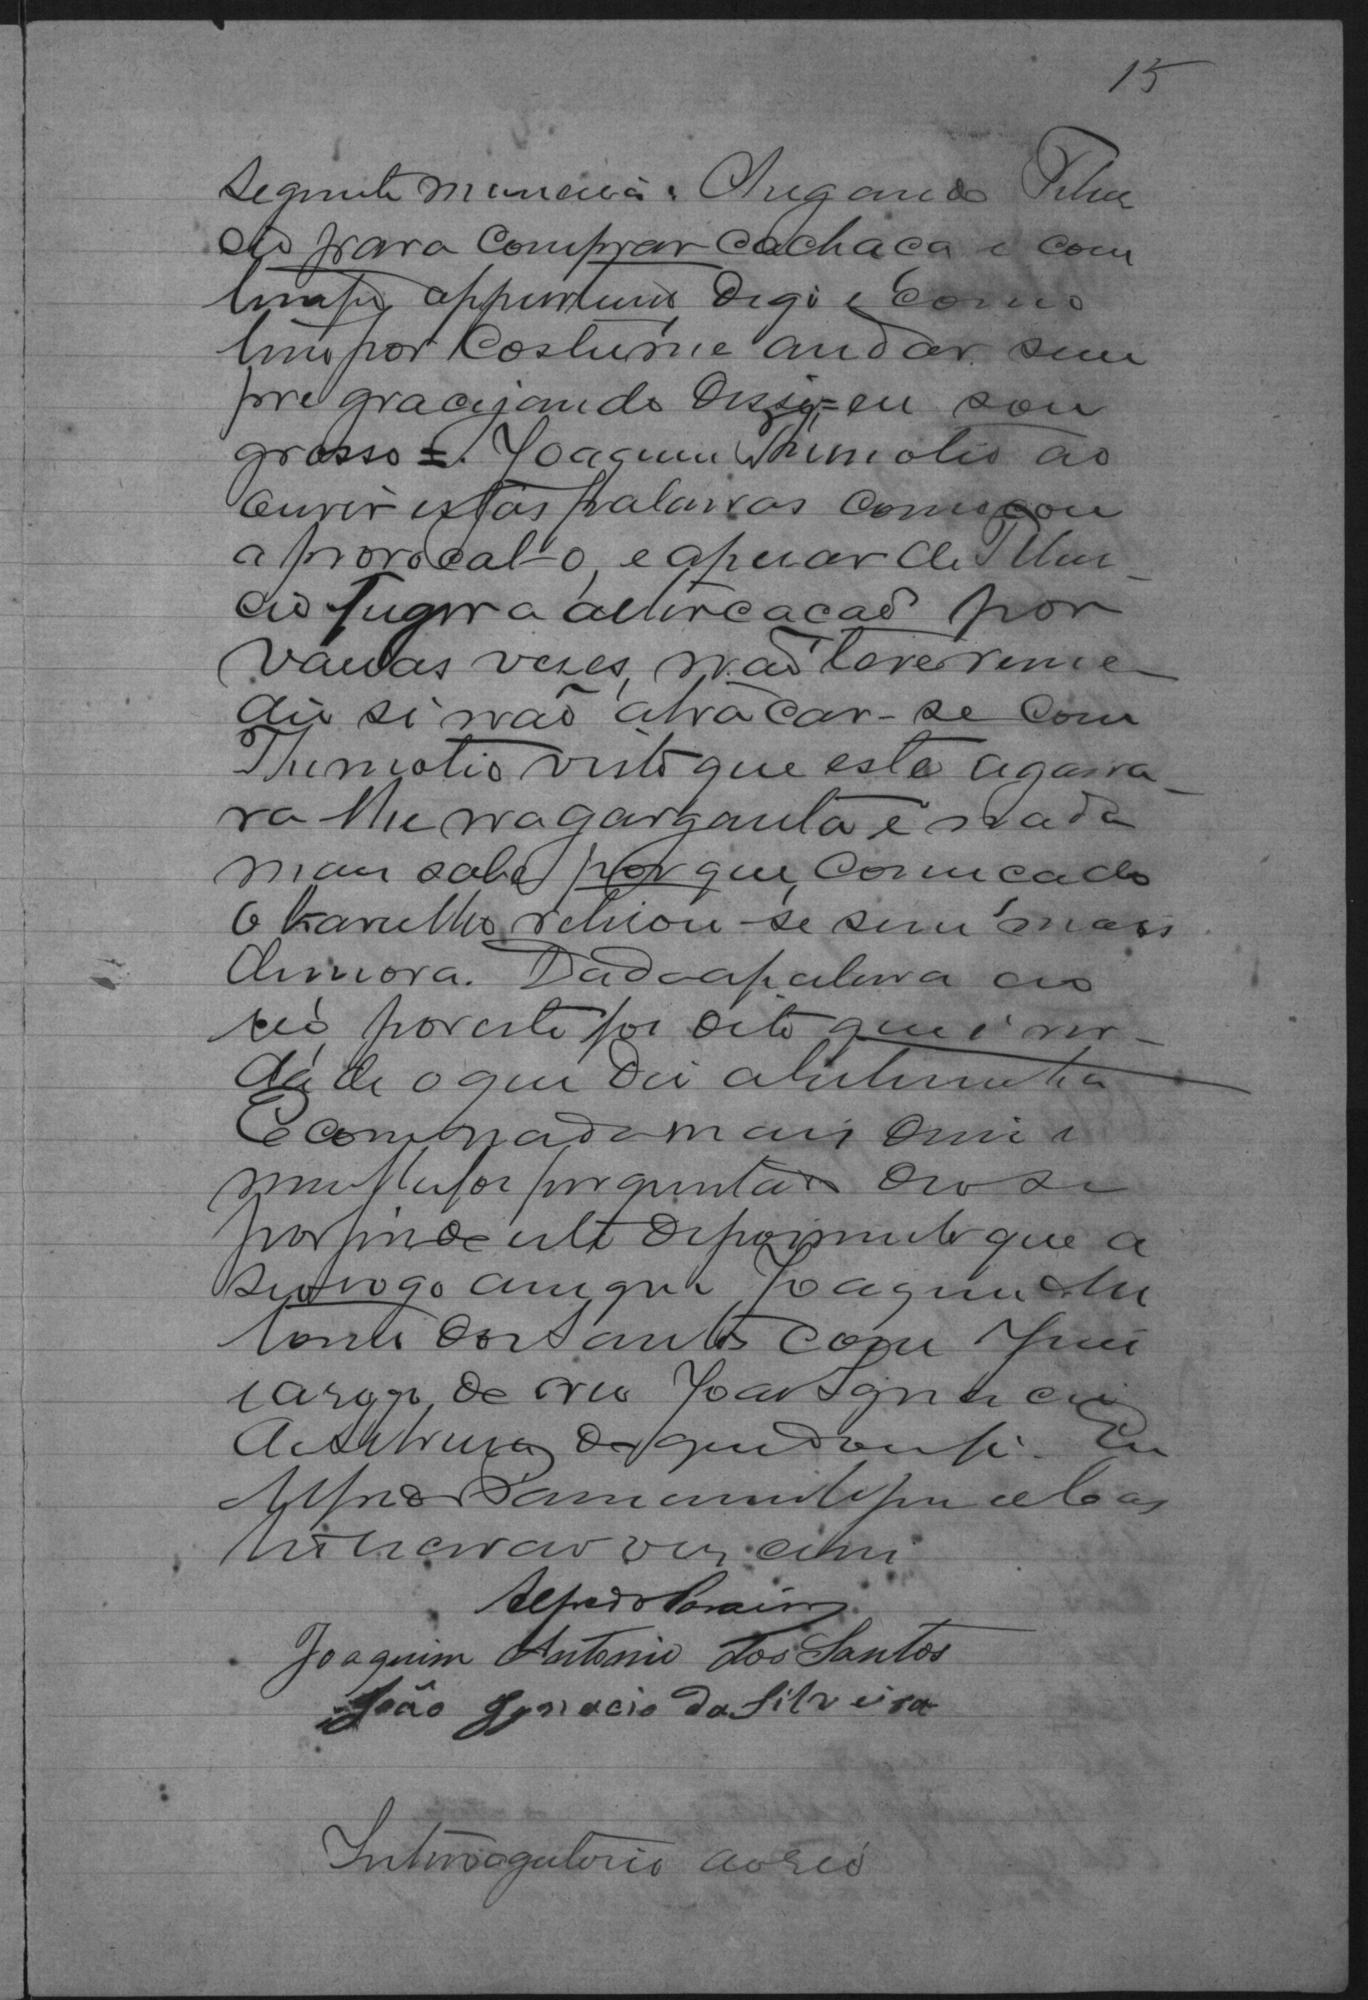 15
seguinte maneira: Chegando Filin
cio para comprar cachaça e com
apportuno digo e como
tinha por costume andar sem
pre gracejando disse = eu sou
grosso =. Joaquim Thimotio ao
ouvir estas palavras começou
a provocal-o, e apesar de Filin-
cio fugir a altercação por
varias veses, não teve reme-
dio si não atracar-se com
Thimotio visto que este agarra-
ra lhe na garganta e nada
mais sabe por que, começado
o barulho retirou-se sem mais
demora. Dada a palavra ao
reó por este foi dito que é ver-
dade o que diz a testemunha
E como nada mais disse e
nem lhe foi perguntado deo se
por findo este depoimento que a
seo rogo assigna Joaquim An
tonio dos Santos com Juiz
a rogo de reo João Ignacio
da Silveira do que dou fé. Eu
Alfredo
escrivão o escrevi
Alfredo
Joaquim Antonio dos Santos
João Ignacio da Silveira
Interrogatorio ao reó